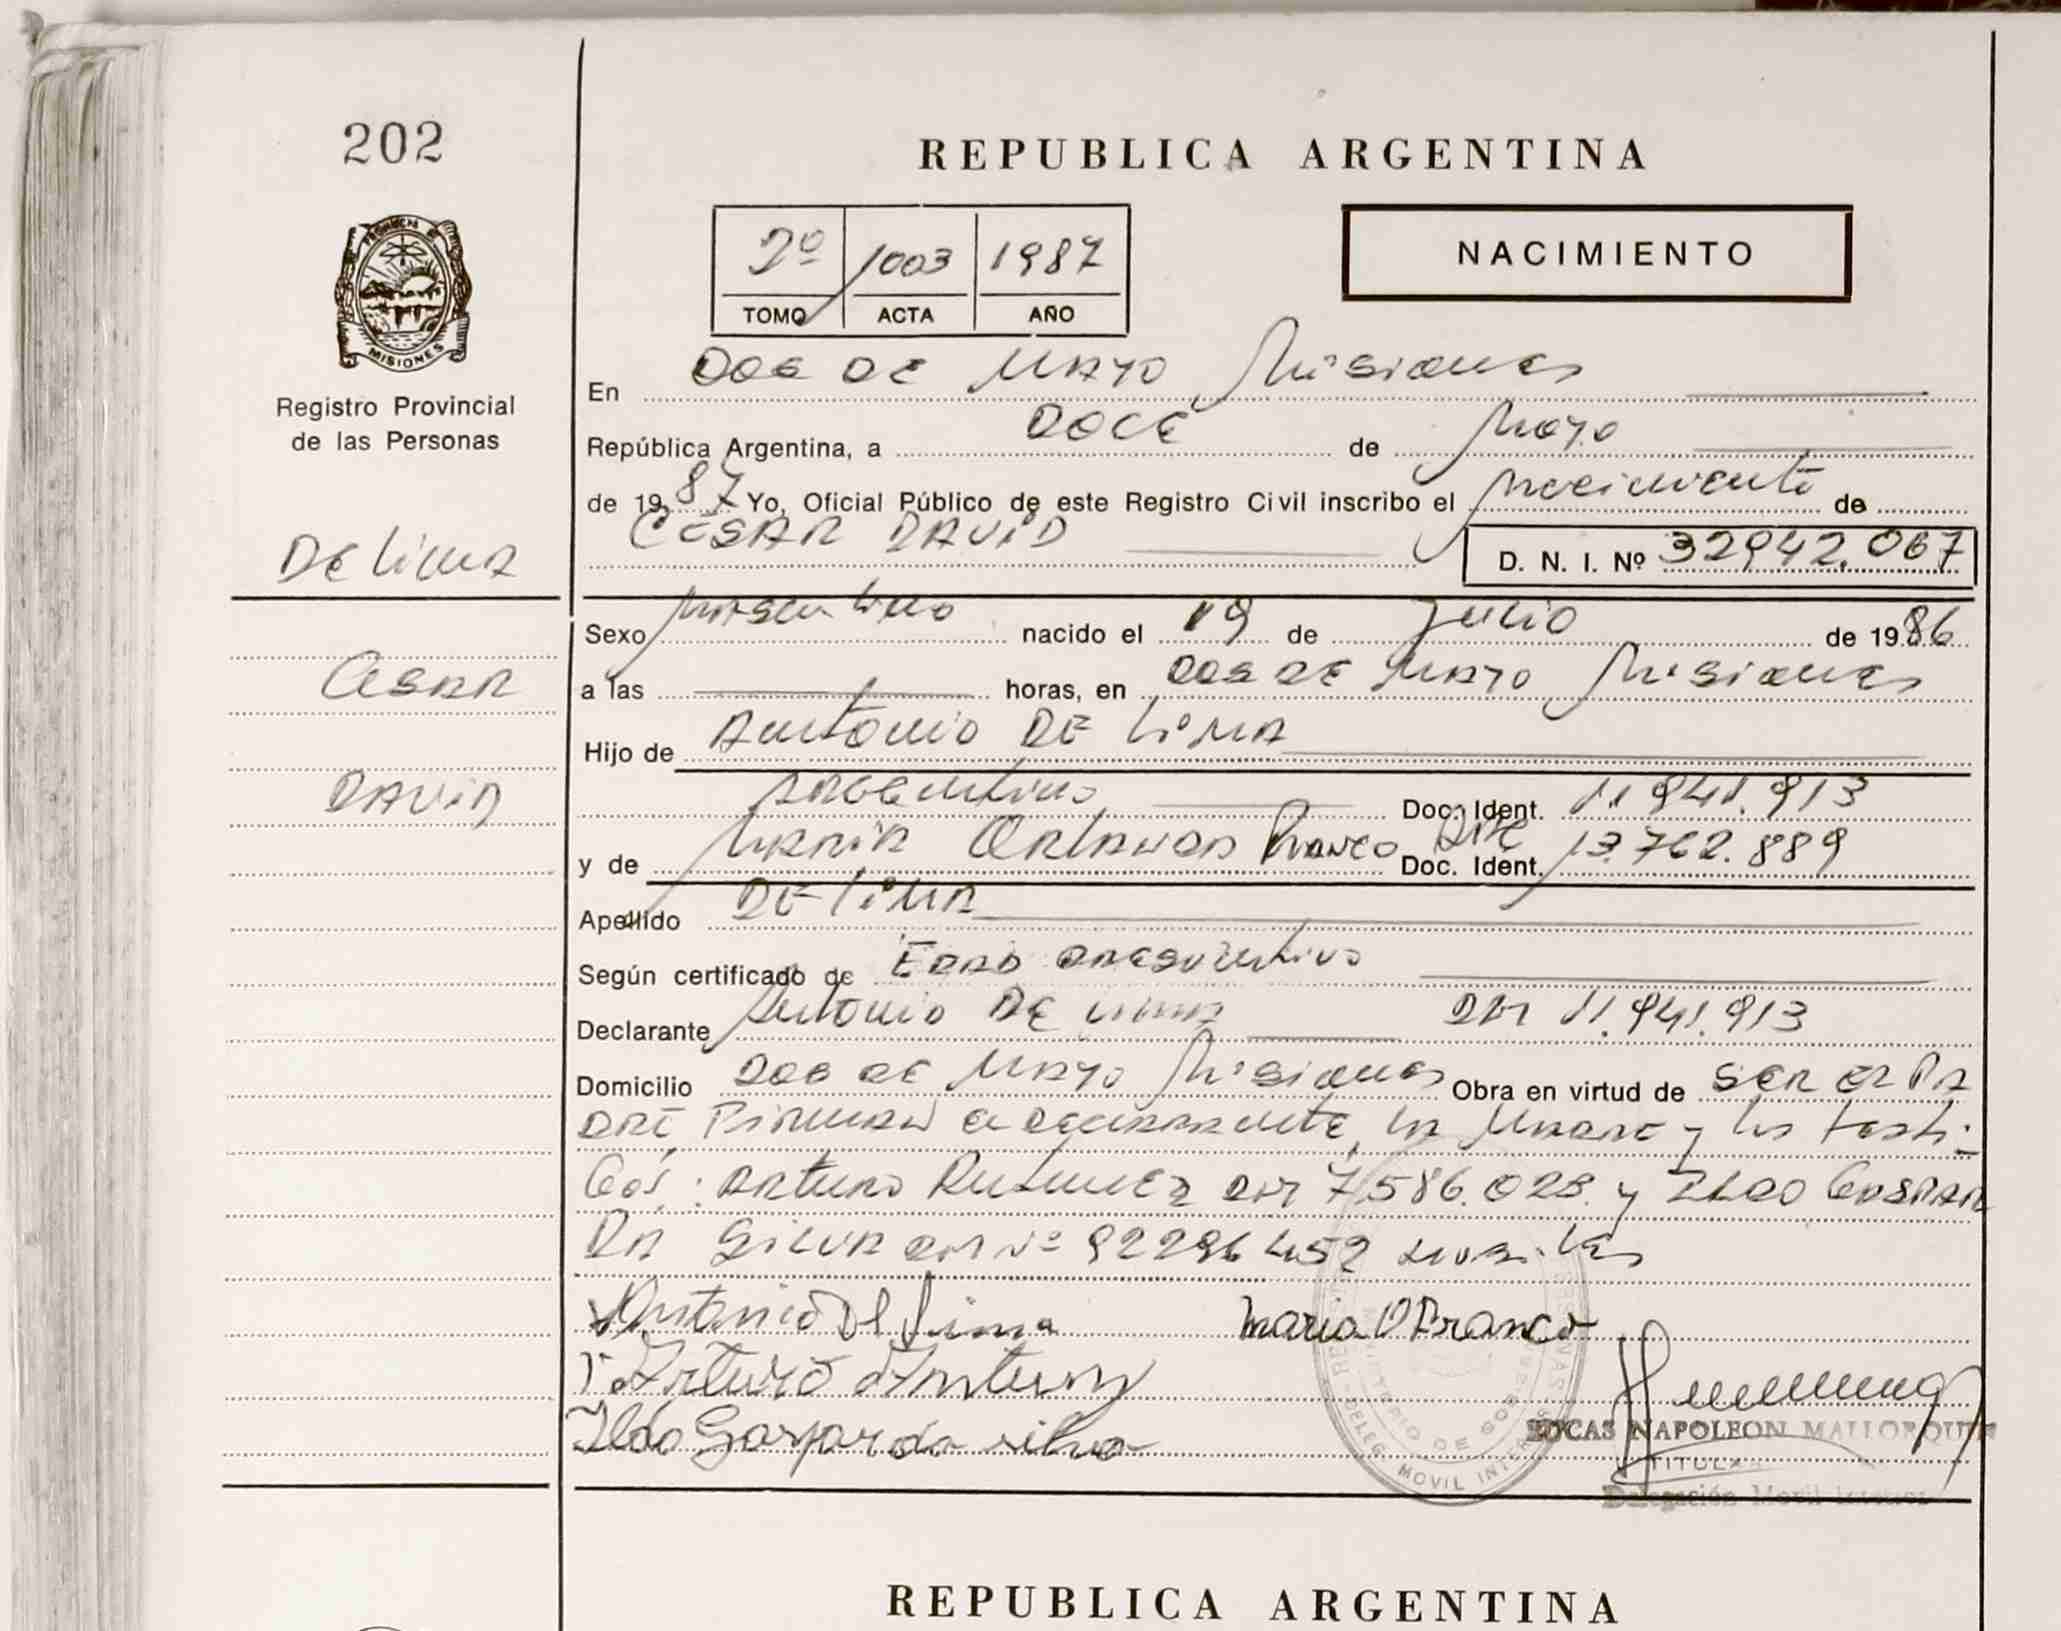 202
REPUBLICA ARGENTINA
2º 1003 1987
TOMO ACTA AÑO
NACIMIENTO
PROVINCIA DE
MISIONES
Registro Provincial
de las Personas
En Dos de Mayo Misiones
República Argentina, a DOCE de Mayo
de 1987 Yo, Oficial Público de este Registro Civil inscribo el nacimiento de
CESAR DAVID D. N. I. Nº 32942.067
De Lima
Sexo Masculino nacido el 19 de Julio de 1986
Cesar
a las horas, en Dos de Mayo Misiones
Hijo de Antonio De Lima
David
Argentino Doc. Ident. 11.941.913
y de Maria Orlanda Franco Arg Doc. Ident. 13.762.889
Apellido De Lima
Según certificado de Edad
Declarante Antonio De Lima DNI 11.941.913
Domicilio Dos de Mayo Misiones Obra en virtud de ser el pa
dre Firman el declarante, la Madre y los testi-
gos: Arturo DNI 7.586.028 y Ildo Gaspar
Da Silva DNI Nº 92296452
Antonio De Lima Maria O Franco
Arturo
Ildo Gaspar da silva
LUCAS NAPOLEON MALLORQUIN
TITULAR
Delegación Movil Interior
REPUBLICA ARGENTINA